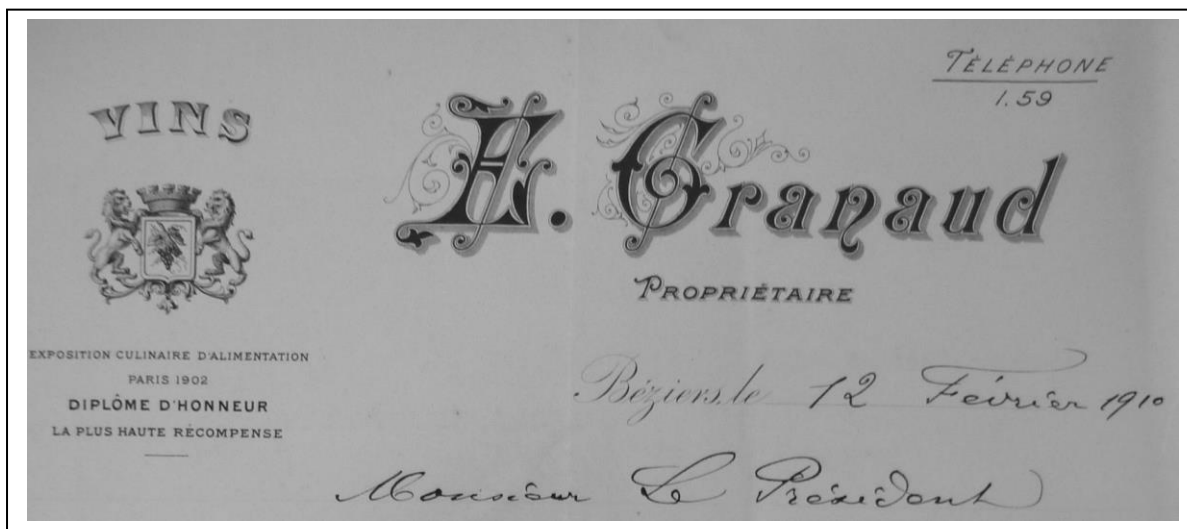 TÉLÉPHONE
1.59
VINS
E. Granaud
PROPRIÉTAIRE
EXPOSITION CULINAIRE D'ALIMENTATION
PARIS 1902
DIPLÔME D'HONNEUR
LA PLUS HAUTE RÉCOMPENSE
Béziers, le 12 Février 1910
Monsieur Le Président